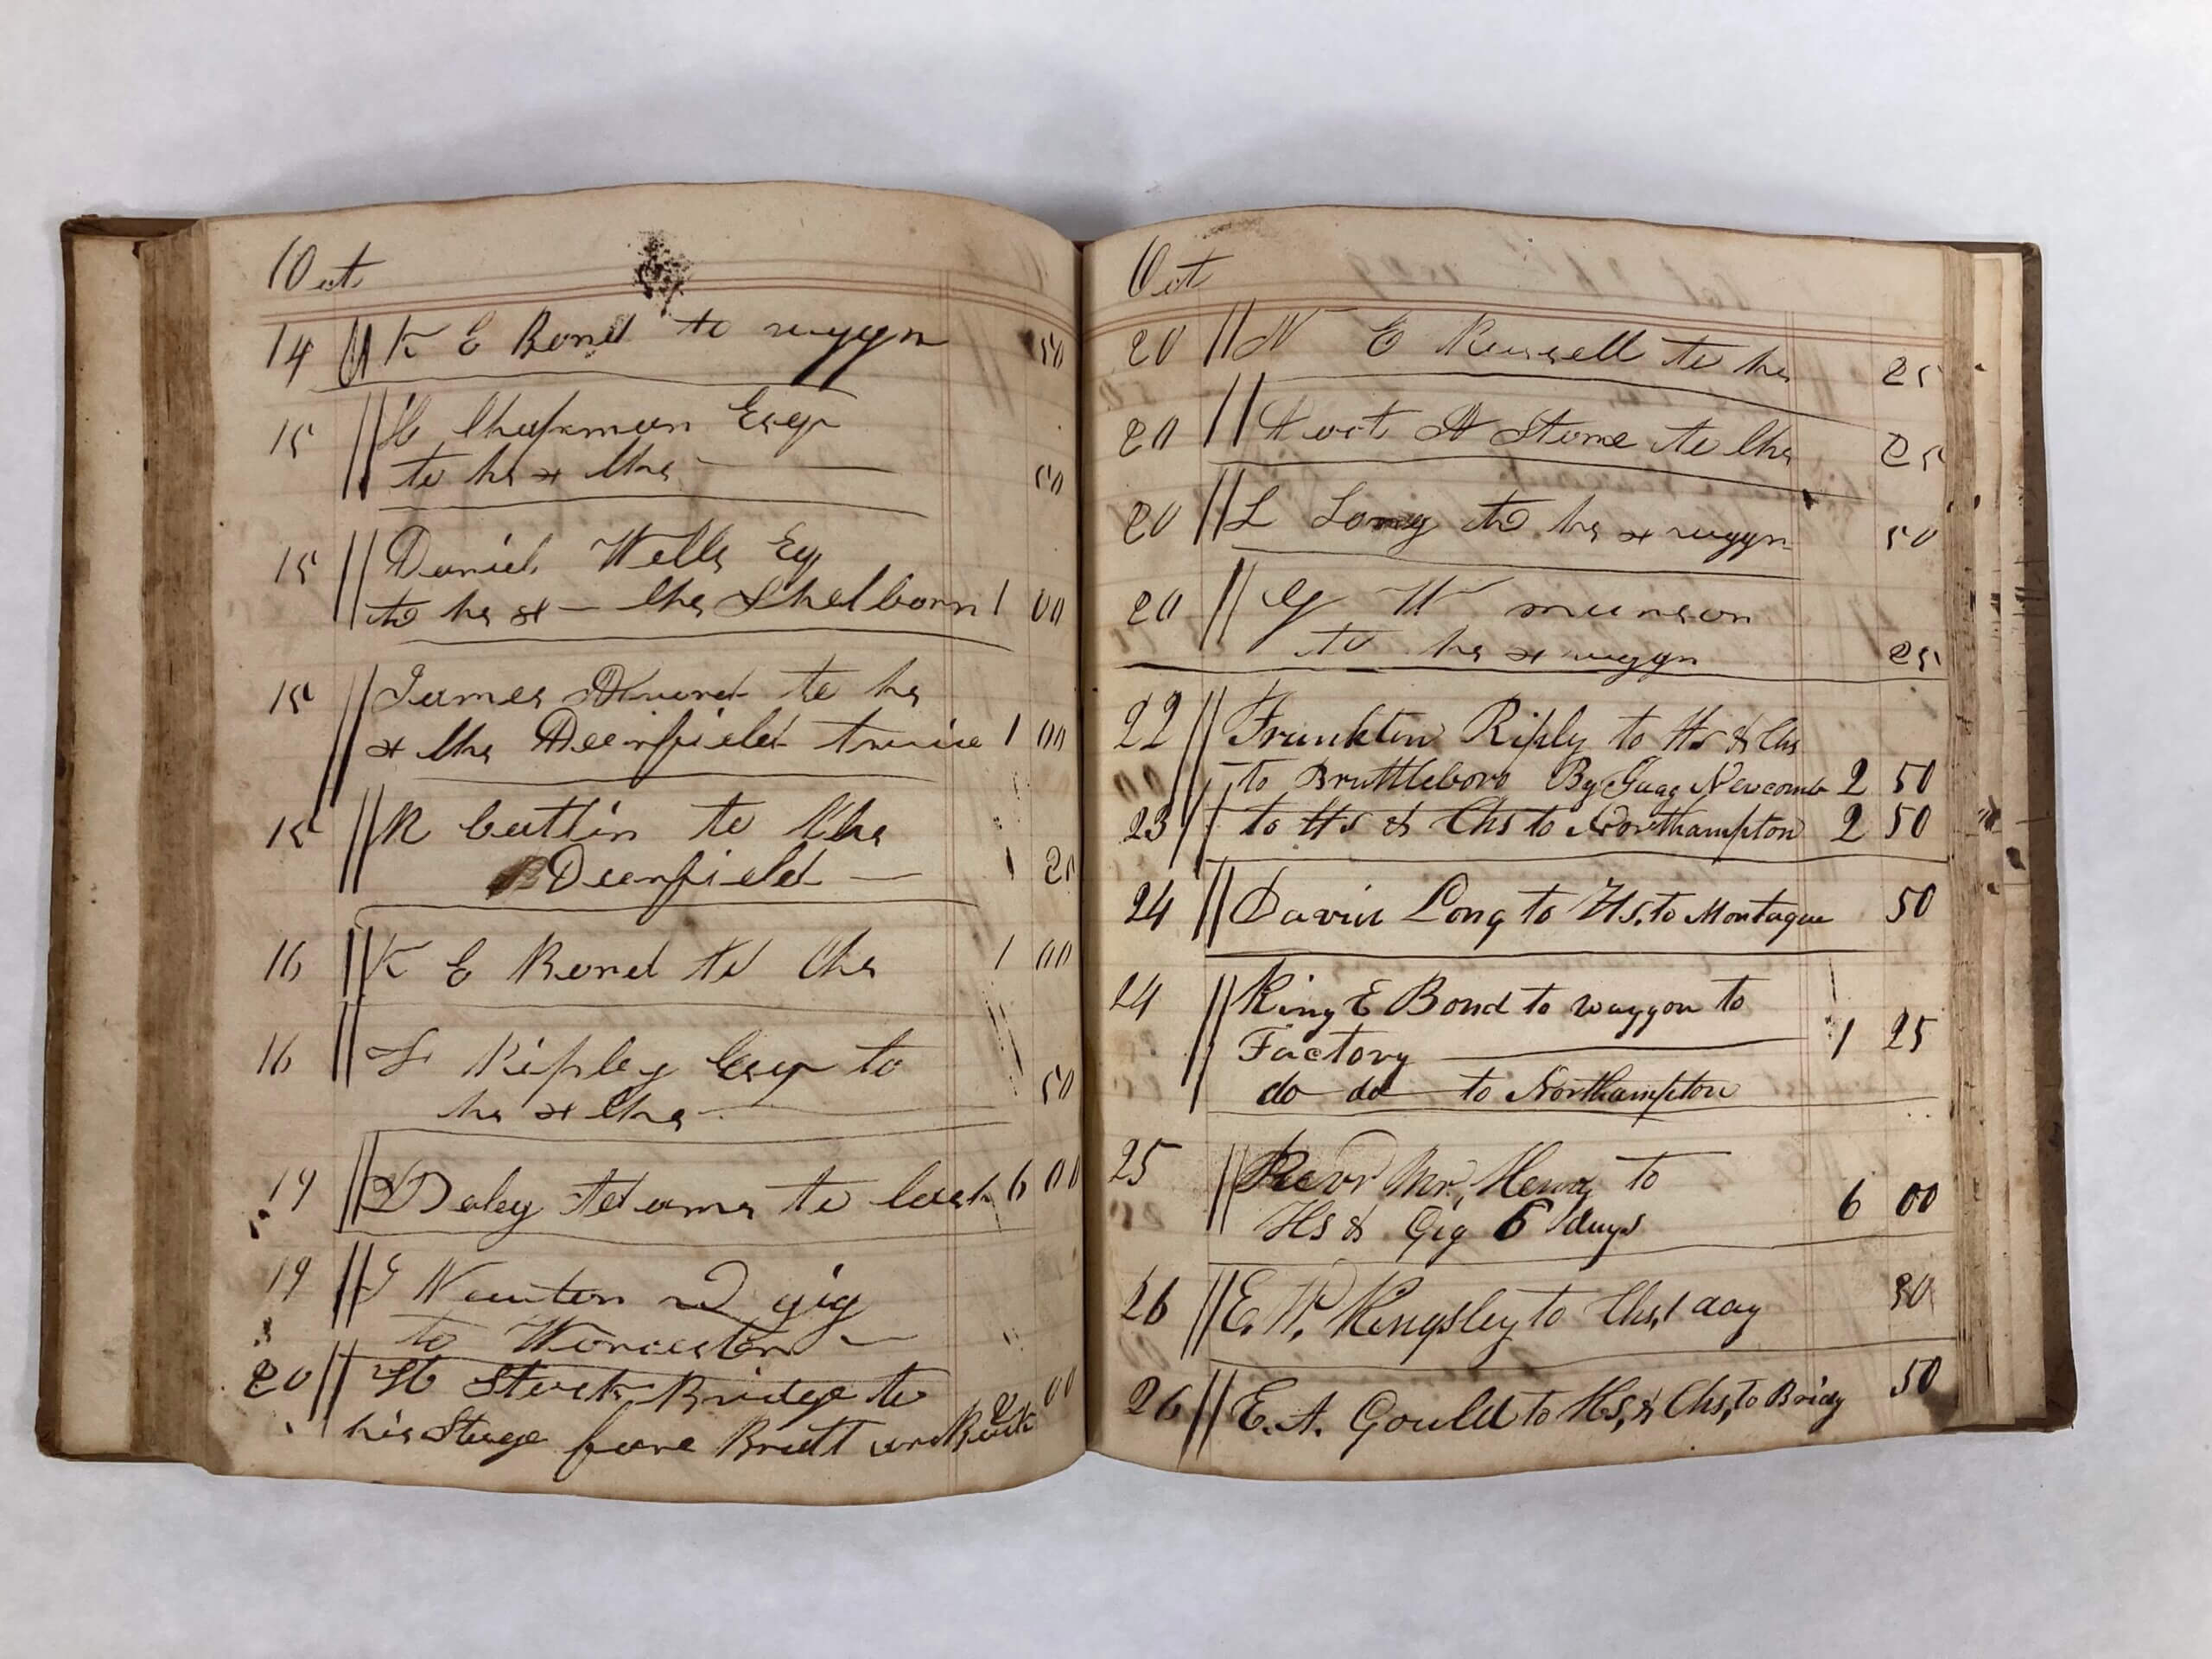 Oct
14 K E Bond to waggn 50
15 H Chapman Esqr
to hs & Chs 50
15 Daniel Wells Eq
to hs & Chs Shelborn 1 00
15 James to hs
& Chs Deerfield twice 1 00
15 R Catlin to Chs
Deerfield 1 25
16 K E Bond to Chs 1 00
16 F Ripley Esqr to
hs & Chs 50
19 Daley Adams to Cash 6 00
19 J Newton gig
to Worcester
20 H Stock Bridge to 2 00
his Stage fare Bratt and Back
Oct
20 N E Russell to hs 25
20 Doct A Stone to Chs 25
20 L Long to hs & waggn 50
20 G W munson
to hs & waggn 25
22 Franklin Riply to Hs & Chs
to Brattleboro By Newcomb 2 50
23 to Hs & Chs to Northampton 2 50
24 David Long to Hs. to Montague 50
24 King E Bond to waggon to
Factory 1 25
do do to Northampton
25 Revd Mr. Henry to
Hs & Gig 6 days 6 00
26 E. W. Kingsley to Chs, 1 day 50
26 E. A. Gould to Hs, & Chs, to Bridg 50